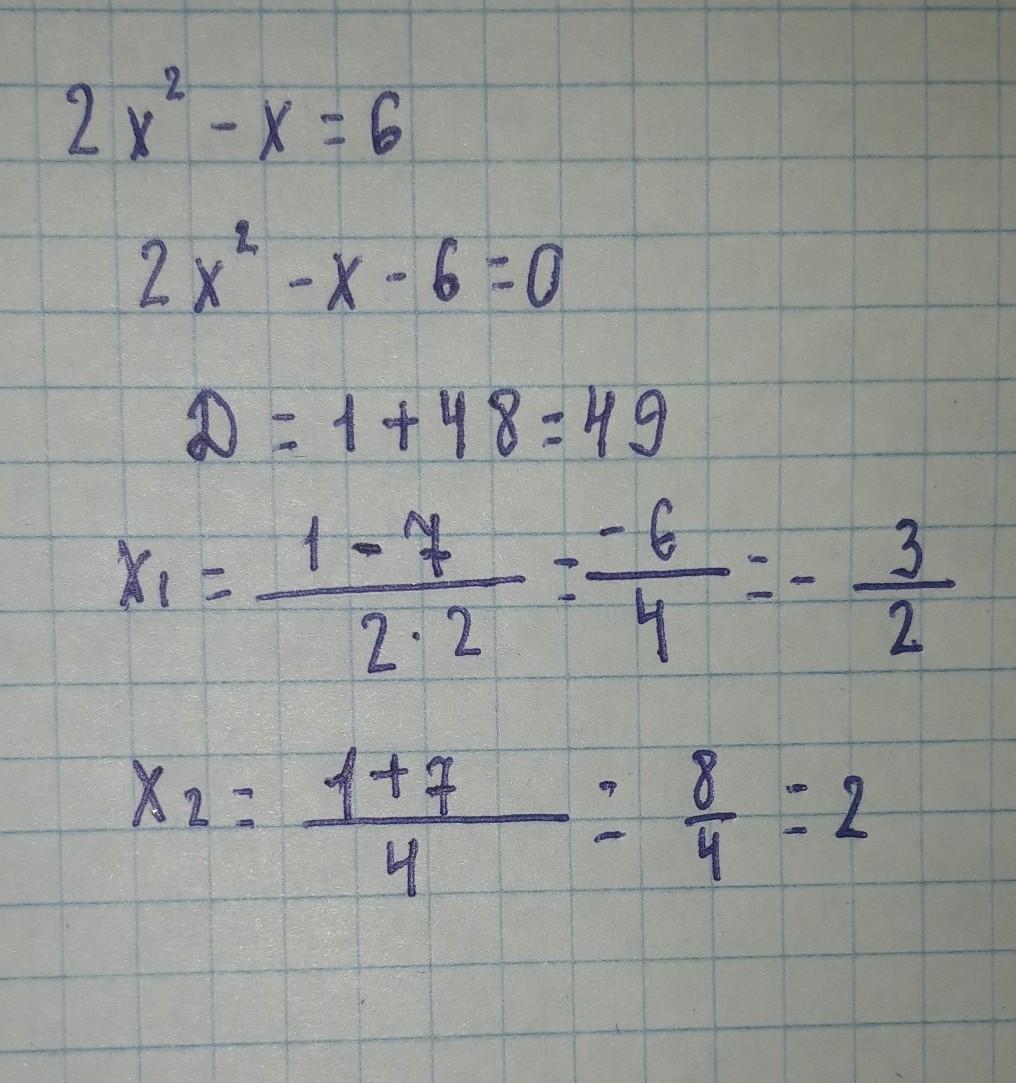 2x² - x = 6
2x² - x - 6 = 0
D = 1 + 48 = 49
x₁ = (1 - 7)/(2 · 2) = -6/4 = - 3/2
x₂ = (1 + 7)/4 = 8/4 = 2